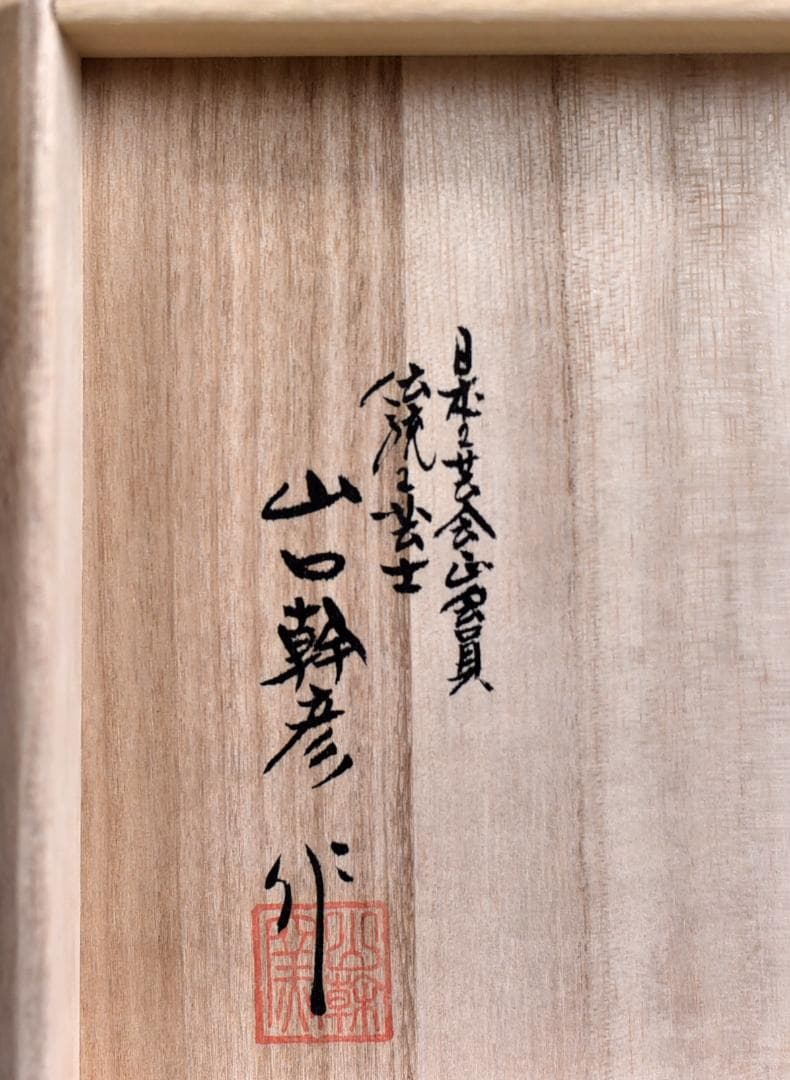 日本工芸会正会員
伝統工芸士
山口幹彦 作